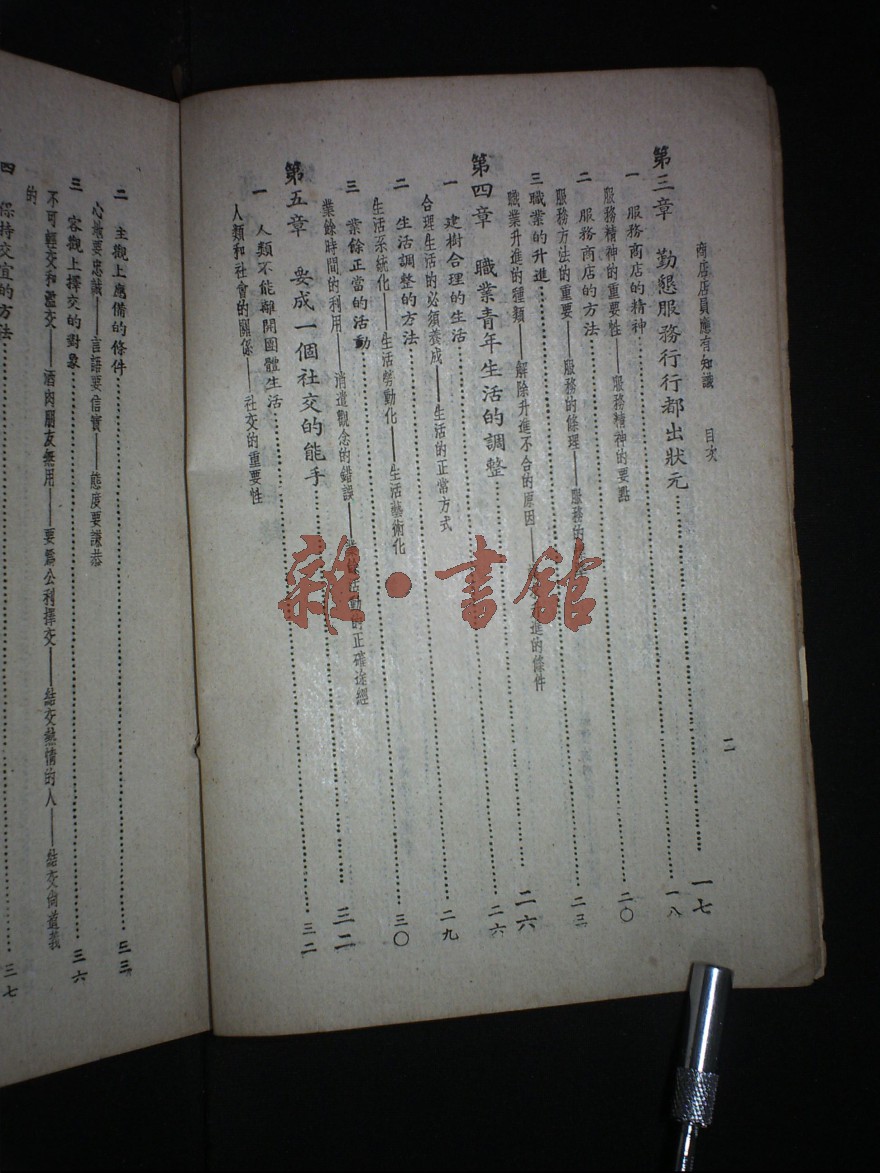 商店店員應有知識 目次 二
第三章 勤懇服務行行都出狀元……一七
一 服務商店的精神……一八
服務精神的重要性——服務精神的要點
二 服務商店的方法……二〇
服務方法的重要——服務的條理——服務的
三 職業的升進……二三
職業升進的種類——解除升進不合的原因——進的條件
第四章 職業青年生活的調整……二六
一 建樹合理的生活……二六
合理生活的必須養成——生活的正常方式
二 生活調整的方法……二九
生活系統化——生活勞動化——生活藝術化
三 業餘正當的活動……三〇
業餘時間的利用——消遣觀念的錯誤——動的正確途經
第五章 要成一個社交的能手……三二
一 人類不能離開團體生活……三二
人類和社會的關係——社交的重要性
二 主觀上應備的條件……三三
心地要忠誠——言語要信實——態度要謙恭
三 客觀上擇交的對象……三六
不可輕交和濫交——酒肉朋友無用——要為公利擇交——結交熱情的人——結交尚道義
的
四 保持交宜的方法……三七
雜·書館